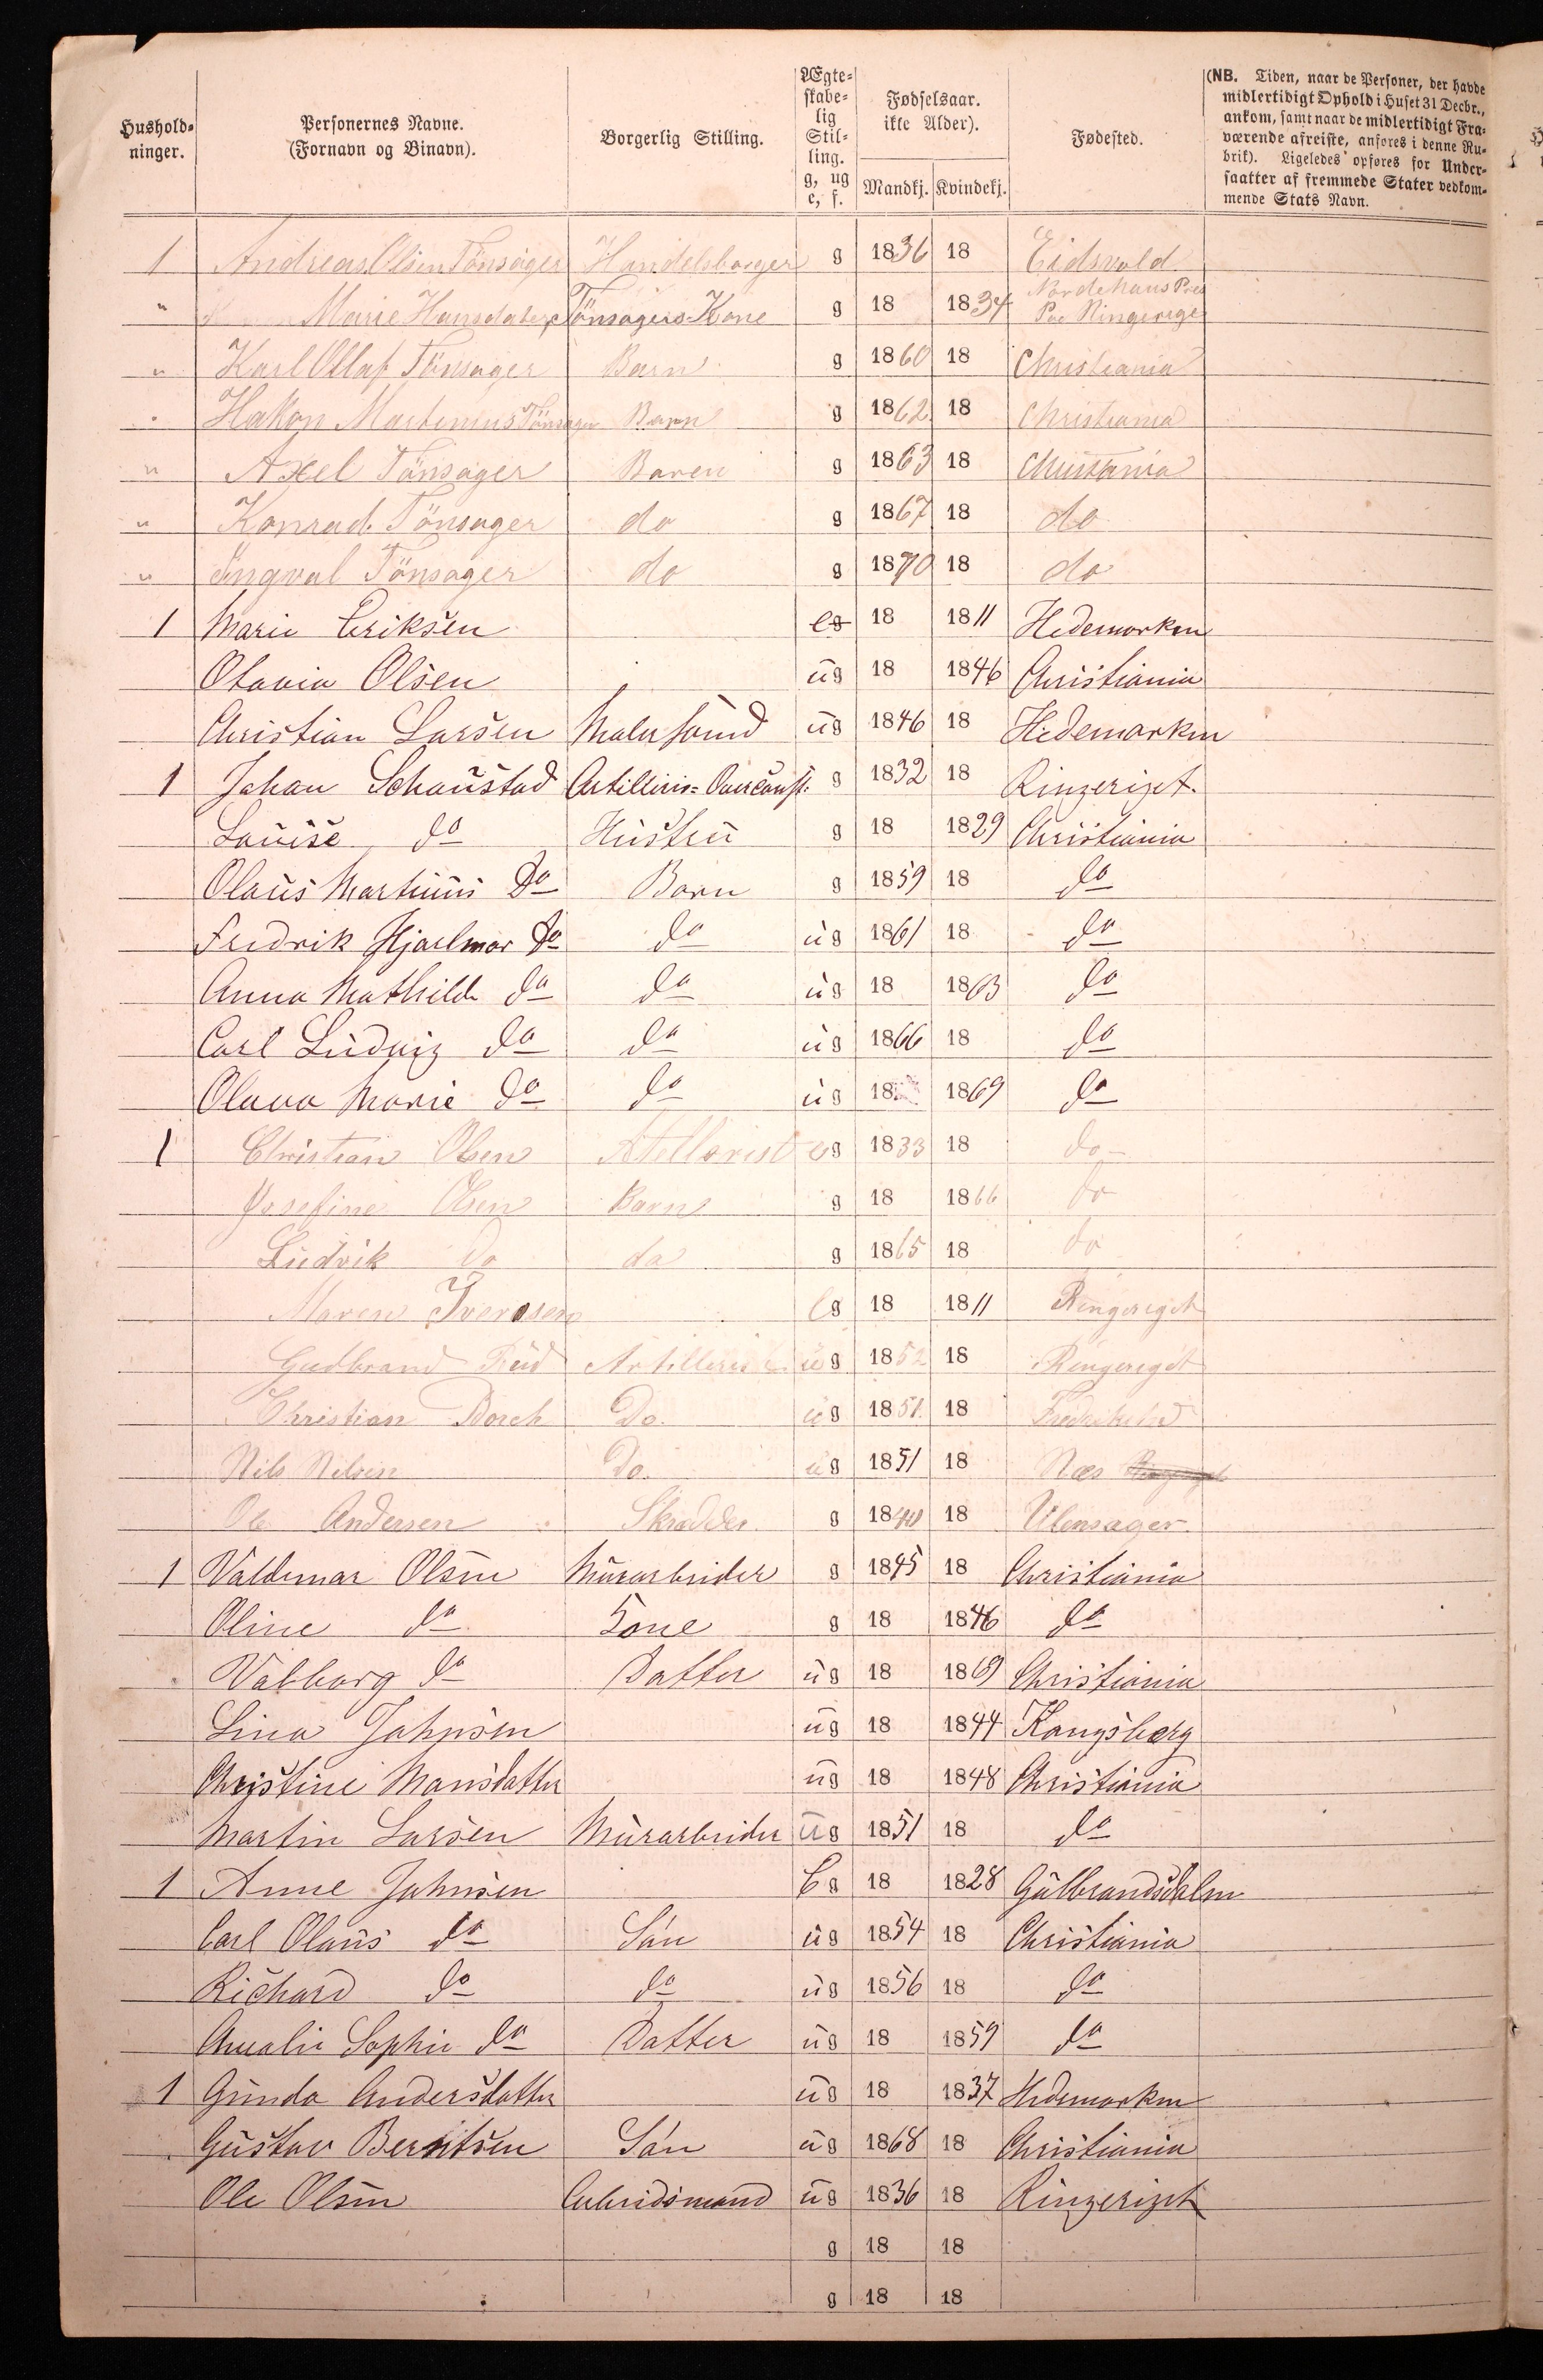 Hushold-
ninger.
Personernes Navne.
(Fornavn og Binavn).
Borgerlig Stilling.
Ægte-
skabe-
lig
Stil-
ling.
g, ug
e, f.
Fødselsaar.
ikke Alder).
Mandkj. Kvindekj.
Fødested.
(NB. Tiden, naar de Personer, der havde
midlertidigt Ophold i Huset 31 Decbr.,
ankom, samt naar de midlertidigt Fra-
værende afreiste, anføres i denne Ru-
brik). Ligeledes opføres for Under-
saatter af fremmede Stater vedkom-
mende Stats Navn.
1 Andreas Olsen Tönsager Handelsborger g 1836 18 Eidsvold
" Marie Hansdater Tönsagers Kone g 18 1834 Nordehaus Pres Paa Ringerige
" Karl Ollaf Tönsager Barn g 1860 18 Christiania
" Hakon Martinius Tönsager Barn g 1862 18 Christiania
" Axel Tönsager Baren g 1863 18 Christania
" Konrad Tönsager do g 1867 18 do
" Ingval Tönsager do g 1870 18 do
1 Marie Eriksen eg 18 1811 Hedemarken
Otavia Olsen ug 18 1846 Christiania
Christian Larsen Malersvend ug 1846 18 Hedemarken
1 Johan Schaustad Artilleris= g 1832 18 Ringeriget.
Louise do Hustru g 18 1829 Christiania
Olaus Martinus Do Barn g 1859 18 do
Fredrik Hjaelmar do do ug 1861 18 do
Anna Mathilde do do ug 18 1863 do
Carl Ludvig do do ug 1866 18 do
Olava Marie do do ug 18 1869 do
1 Christian Olsen Atellerist eg 1833 18 do
Josefine Olsen Barn g 18 1866 do
Ludvik do do g 1865 18 do
Maren Iversen eg 18 1811 Ringeriget
Gudbrand Rud Artillerist ug 1852 18 Ringeriget
Christian Borch Do. ug 1851 18 Fredrikstad
Nils Nilsen Do. ug 1851 18 Næs
Ole Andersen Skrædder g 1840 18 Ulensager
1 Valdemar Olsen Murarbeider g 1845 18 Christiania
Oline do Kone g 18 1846 do
Valborg do Datter ug 18 1869 Christiania
Lina Johnsen ug 18 1844 Kongsberg
Christine Mansdatter ug 18 1848 Christiania
Martin Larsen Murarbeider ug 1851 18 do
1 Anne Johnsen Eg 18 1828 Gulbrandsdalen
Carl Olaus do Sön ug 1854 18 Christiania
Richard do do ug 1856 18 do
Amalie Sophie do Datter ug 18 1859 do
1 Gunda Andersdatter ug 18 1837 Hedemarken
Gustav Berntsen Sön ug 1868 18 Christiania
Ole Olsen Arbeidsmand ug 1836 18 Ringeriget
g 18 18
g 18 18